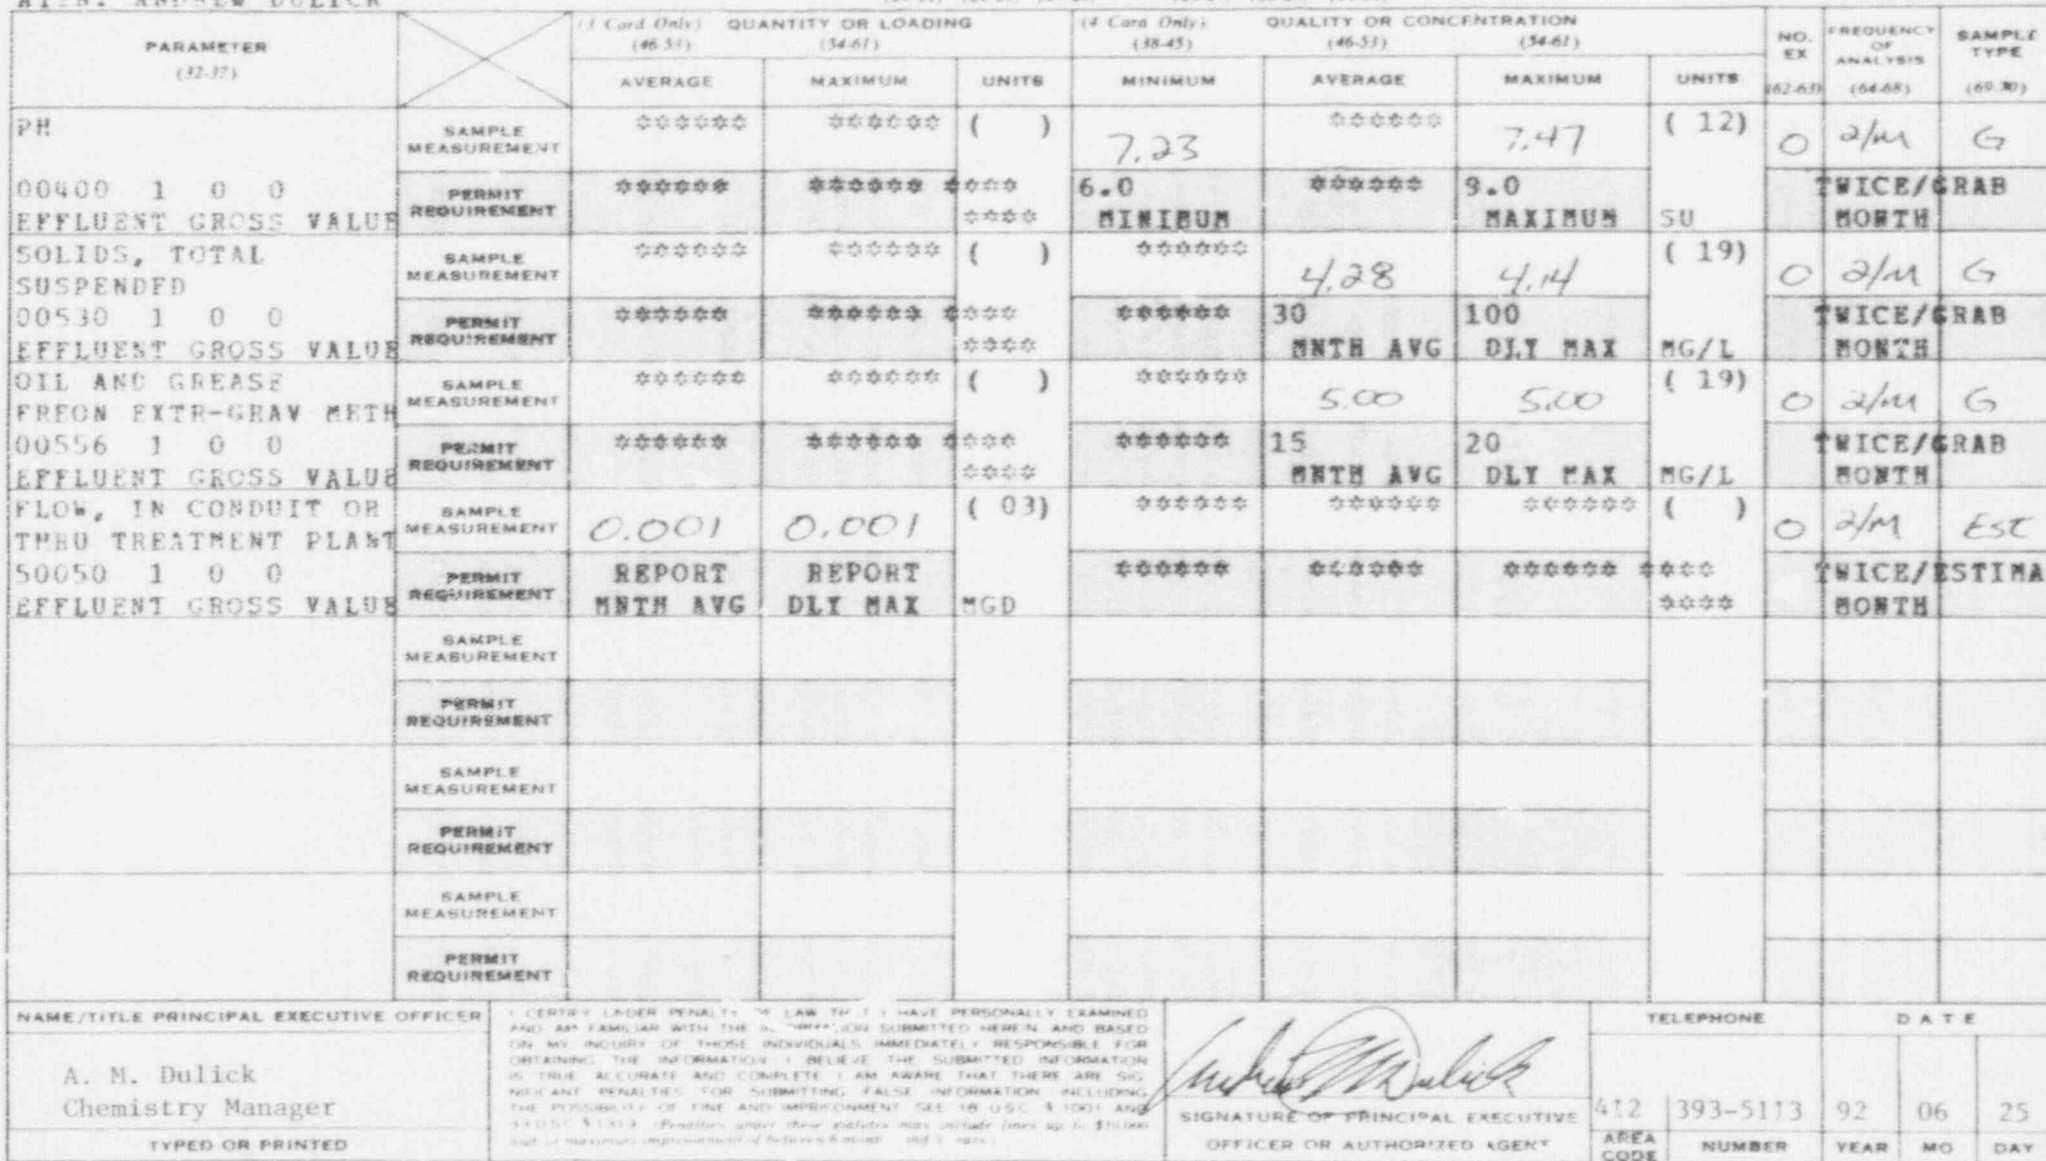 ATTN: ANDREW DULICK
PARAMETER
(32-37)
(3 Card Only) QUANTITY OR LOADING
(46-53) (54-61)
AVERAGE MAXIMUM UNITS
(4 Card Only) QUALITY OR CONCENTRATION
(38-45) (46-53) (54-61)
MINIMUM AVERAGE MAXIMUM UNITS
NO. EX
(62-63)
FREQUENCY OF ANALYSIS
(64-68)
SAMPLE TYPE
(69-70)
PH
SAMPLE MEASUREMENT ****** ****** ( ) 7.23 ****** 7.47 ( 12) 0 2/M G
00400 1 0 0
EFFLUENT GROSS VALUE
PERMIT REQUIREMENT ****** ****** **** 6.0 ****** 9.0 TWICE/GRAB
**** MINIMUM MAXIMUM SU MONTH
SOLIDS, TOTAL
SUSPENDED
SAMPLE MEASUREMENT ****** ****** ( ) ****** 4.28 4.14 ( 19) 0 2/M G
00530 1 0 0
EFFLUENT GROSS VALUE
PERMIT REQUIREMENT ****** ****** **** ****** 30 100 TWICE/GRAB
**** MNTH AVG DLY MAX MG/L MONTH
OIL AND GREASE
FREON EXTR-GRAV METH
SAMPLE MEASUREMENT ****** ****** ( ) ****** 5.00 5.00 ( 19) 0 2/M G
00556 1 0 0
EFFLUENT GROSS VALUE
PERMIT REQUIREMENT ****** ****** **** ****** 15 20 TWICE/GRAB
**** MNTH AVG DLY MAX MG/L MONTH
FLOW, IN CONDUIT OR
THRU TREATMENT PLANT
SAMPLE MEASUREMENT 0.001 0.001 ( 03) ****** ****** ****** ( ) 0 2/M EST
50050 1 0 0
EFFLUENT GROSS VALUE
PERMIT REQUIREMENT REPORT REPORT ****** ****** ****** **** TWICE/ESTIMA
MNTH AVG DLY MAX MGD **** MONTH
SAMPLE MEASUREMENT
PERMIT REQUIREMENT
SAMPLE MEASUREMENT
PERMIT REQUIREMENT
SAMPLE MEASUREMENT
PERMIT REQUIREMENT
NAME/TITLE PRINCIPAL EXECUTIVE OFFICER
A. M. Dulick
Chemistry Manager
TYPED OR PRINTED
I CERTIFY UNDER PENALTY OF LAW THAT I HAVE PERSONALLY EXAMINED
AND AM FAMILIAR WITH THE INFORMATION SUBMITTED HEREIN AND BASED
ON MY INQUIRY OF THOSE INDIVIDUALS IMMEDIATELY RESPONSIBLE FOR
OBTAINING THE INFORMATION I BELIEVE THE SUBMITTED INFORMATION
IS TRUE ACCURATE AND COMPLETE I AM AWARE THAT THERE ARE SIG
NIFICANT PENALTIES FOR SUBMITTING FALSE INFORMATION INCLUDING
THE POSSIBILITY OF FINE AND IMPRISONMENT SEE 18 USC § 1001 AND
33 USC § 1319 (Penalties under these statutes may include fines up to $10,000
and or maximum imprisonment of between 6 months and years)
Andrew M Dulick
SIGNATURE OF PRINCIPAL EXECUTIVE
OFFICER OR AUTHORIZED AGENT
TELEPHONE
412 393-5113
AREA CODE NUMBER
DATE
92 06 25
YEAR MO DAY